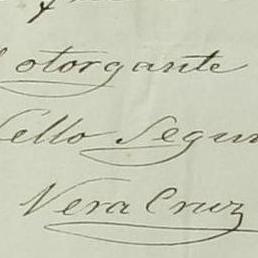 otorgante
Sello Segun
Vera Cruz